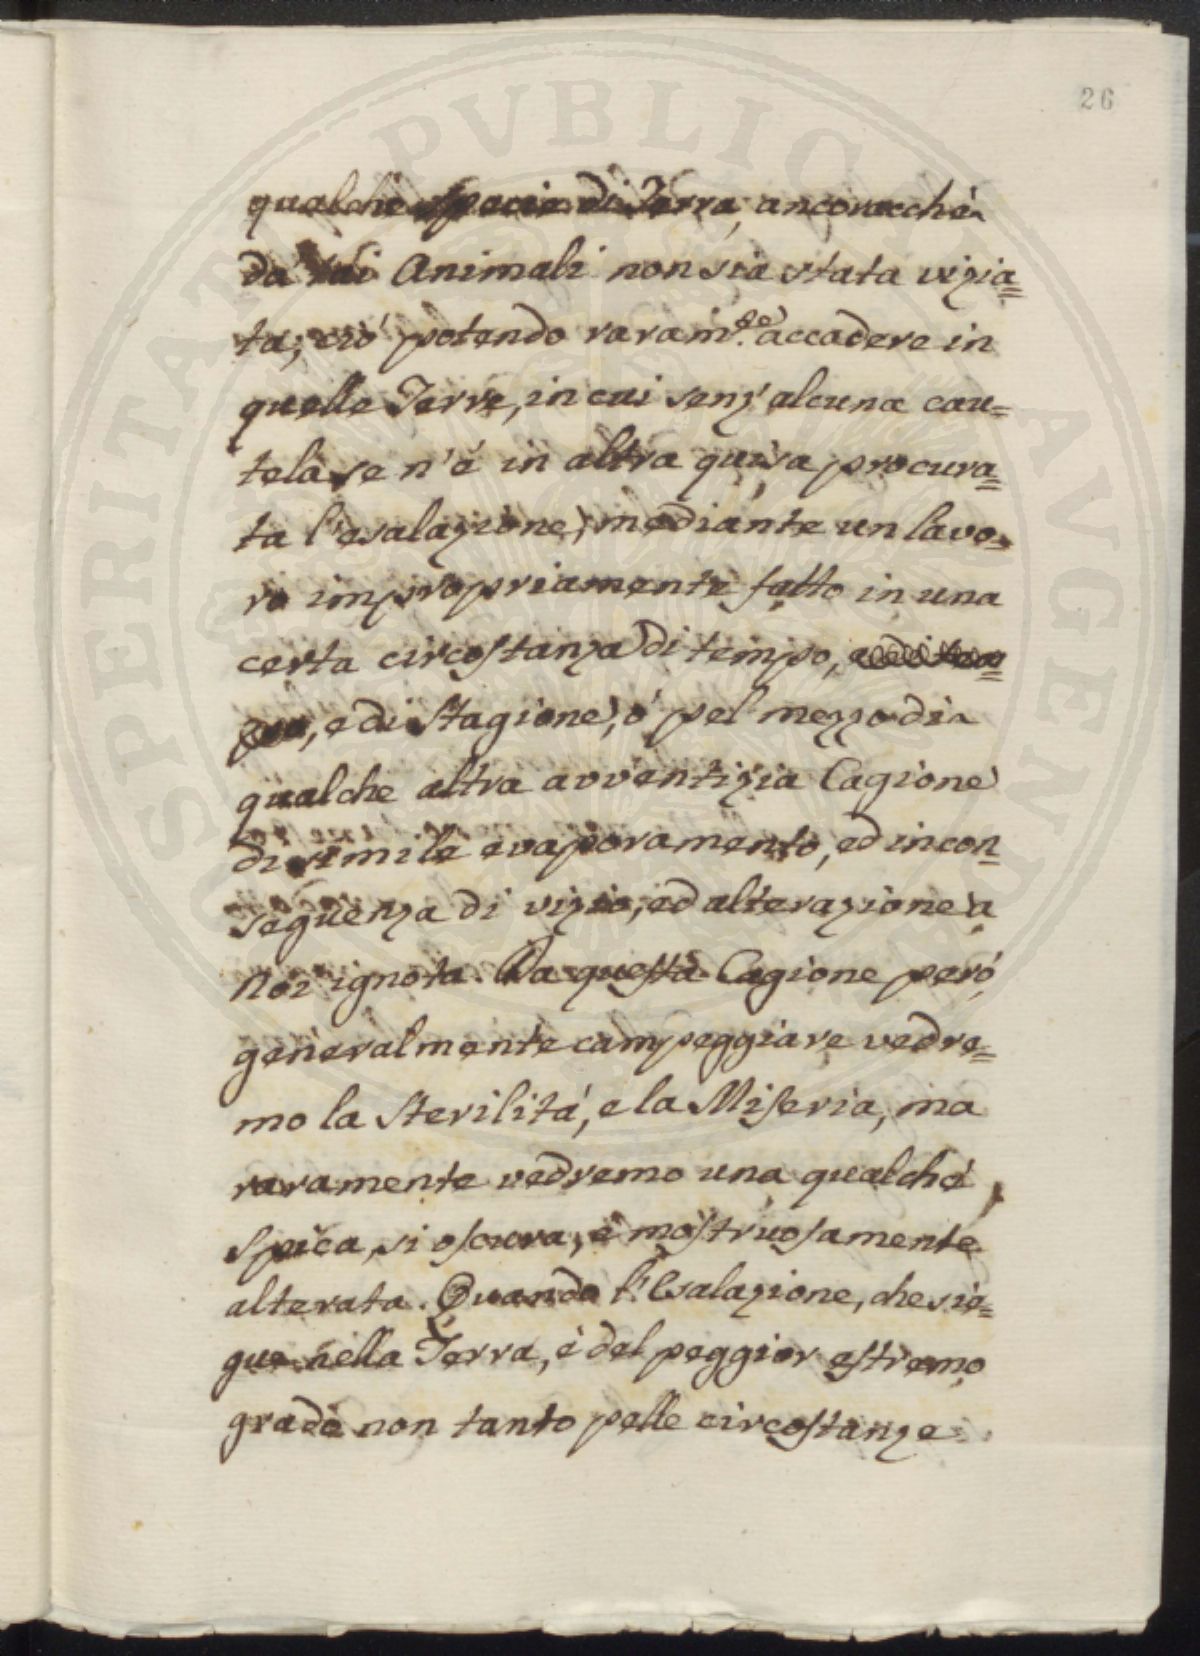 26
qualche specie di Terra, ancorecché
da tai Animali non sia stata vizia=
ta; ciò potendo raram.te accadere in
quelle Terre, in cui senz'alcuna cau=
tela se n'é in altra guisa procura=
ta l'esalazione, mediante un lavo=
ro impropriamente fatto in una
certa circostanza di tempo,
, e di Stagione, ó pel mezzo di
qualche altra avventizia Cagione
di simile evaporamento, ed incon=
seguenza di vizio, ed alterazione a
Noi ignota. Da questa Cagione peró
generalmente campeggiare vedre=
mo la Sterilitá, e la Miseria, ma
raramente vedremo una qualche
Spica, si oscura, e mostruosamente
alterata. Quando l'Esalazione, che sie=
gue nella Terra, é del peggior estremo
grado non tanto pelle circostanze
PVBLICAE
PROSPERITATI
AVGENDAE